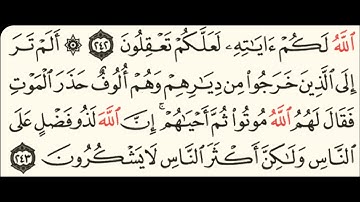 ٱللَّهُ لَكُمْ ءَايَٰتِهِۦ لَعَلَّكُمْ تَعْقِلُونَ ٢٤٢ ۞ أَلَمْ تَرَ
إِلَى ٱلَّذِينَ خَرَجُوا۟ مِن دِيَٰرِهِمْ وَهُمْ أُلُوفٌ حَذَرَ ٱلْمَوْتِ
فَقَالَ لَهُمُ ٱللَّهُ مُوتُوا۟ ثُمَّ أَحْيَٰهُمْ ۚ إِنَّ ٱللَّهَ لَذُو فَضْلٍ عَلَى
ٱلنَّاسِ وَلَٰكِنَّ أَكْثَرَ ٱلنَّاسِ لَا يَشْكُرُونَ ٢٤٣